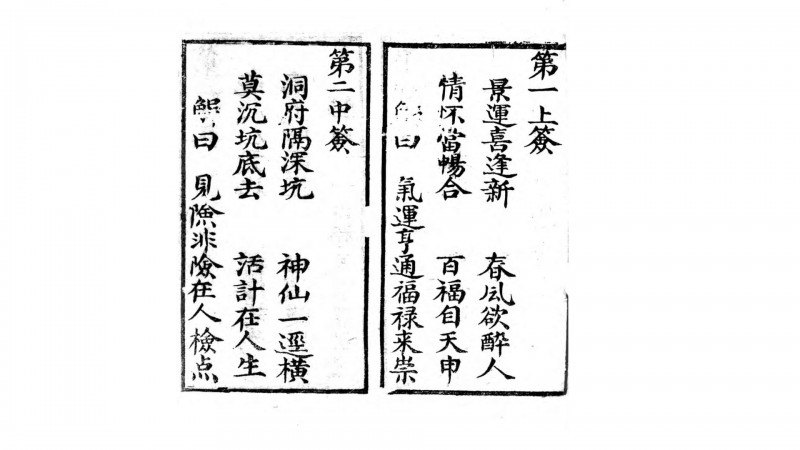 第一上簽
景運喜逢新 春風欲醉人
情怀當暢合 百福自天申
解曰 氣運亨通福禄来崇
第二中簽
洞府隔深坑 神仙一逕橫
莫沉坑底去 活計在人生
解曰 見險非險在人檢点